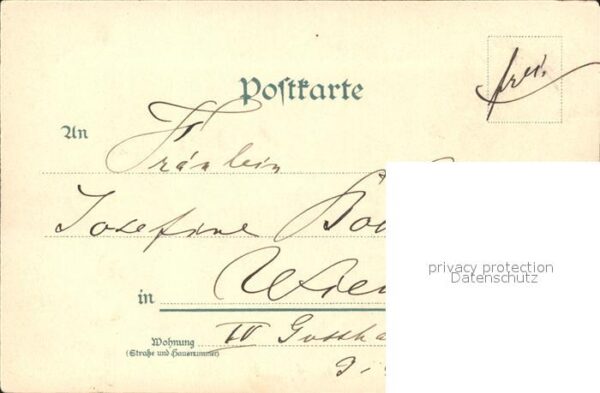 Postkarte
frei.
An
Fräulein
Josefine
in Wien
Wohnung IV
(Straße und Hausnummer)
privacy protection
Datenschutz